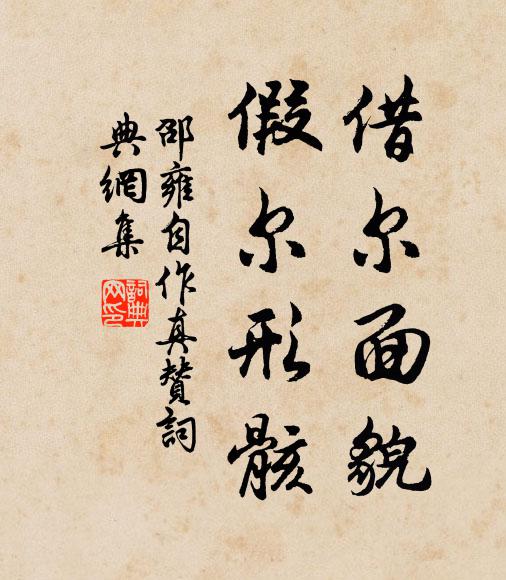 借尔面貌
假尔形骸
邵雍自作真赞詞
典網集
詞典
网印